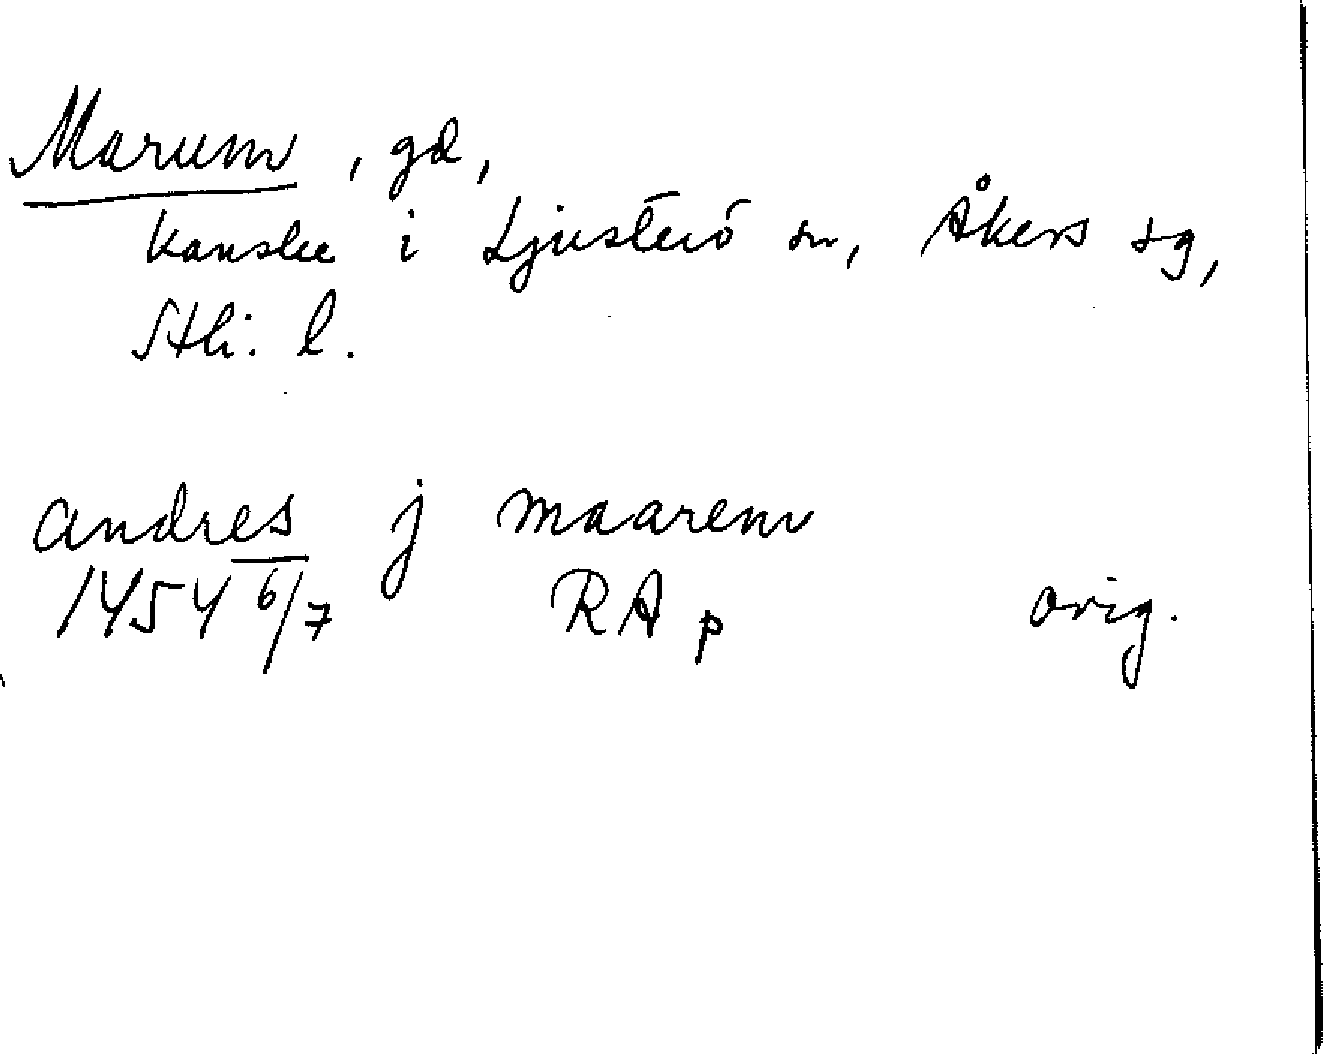 Marum, gd,
kanske i Ljusterö sn, Åkers sg,
Sth: l.
andres j maarem
1454 6/7 RA p orig.